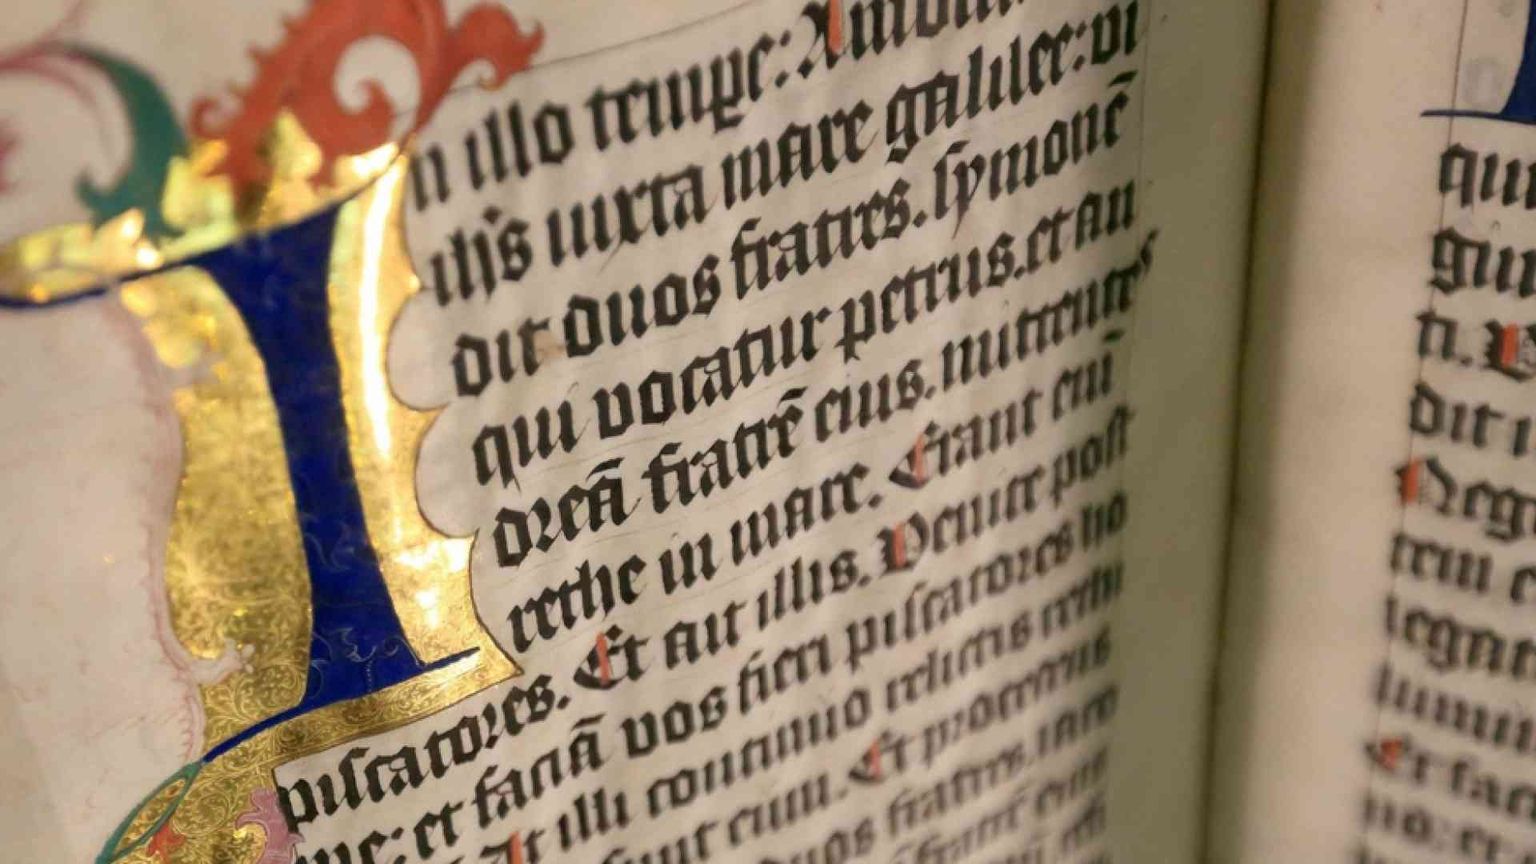 In illo tempe: Ambula
ihs iuxta mare galilee: vi
dit duos fratres. symonē
qui vocatur petrus. et an
dreā fratrē eius. mittentes
rethe in mare. Erant eni
piscatores. Et ait illis. Venite post
me: et faciā vos fieri piscatores ho
At illi continuo relictis rethi
sunt eum. Et procedens
duos fratres.
qui
gin
ti.
dit i
Neg
rem e
legat
lumin
Et fac
no: et